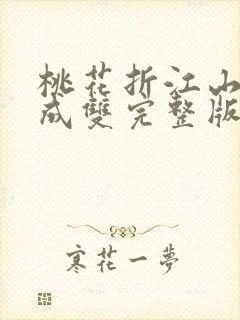 桃花折江山
成雙完整版
寒花一夢